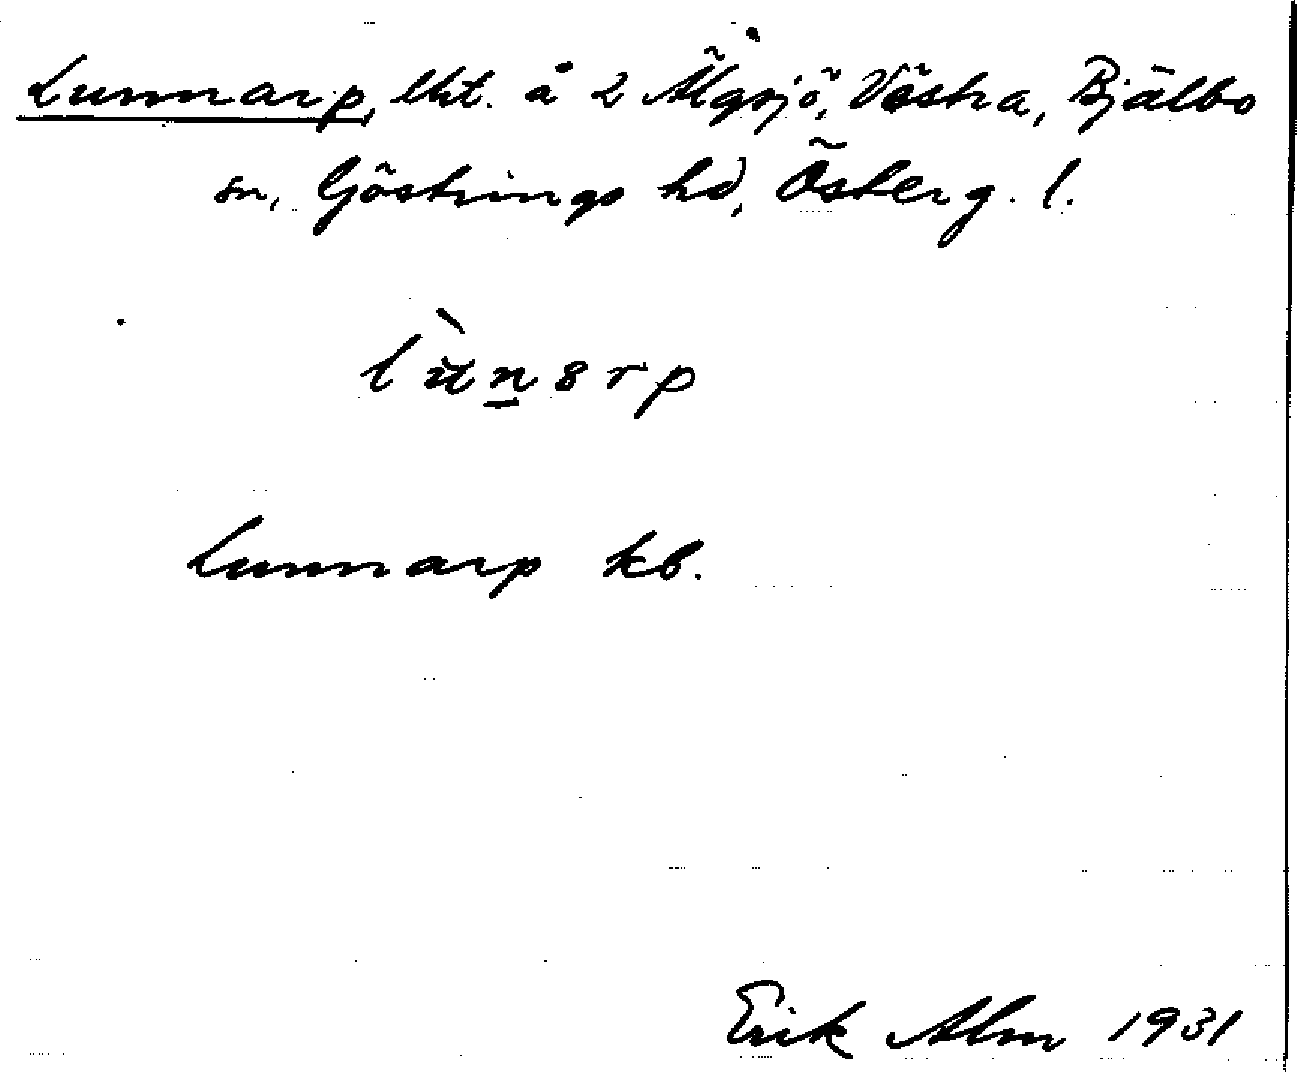 Lunnarp, lht. å 2 Älgsjö, Västra, Bjälbo
sn, Göstrings hd, Österg. l.
Lunnarp kb.
Erik Alm 1931